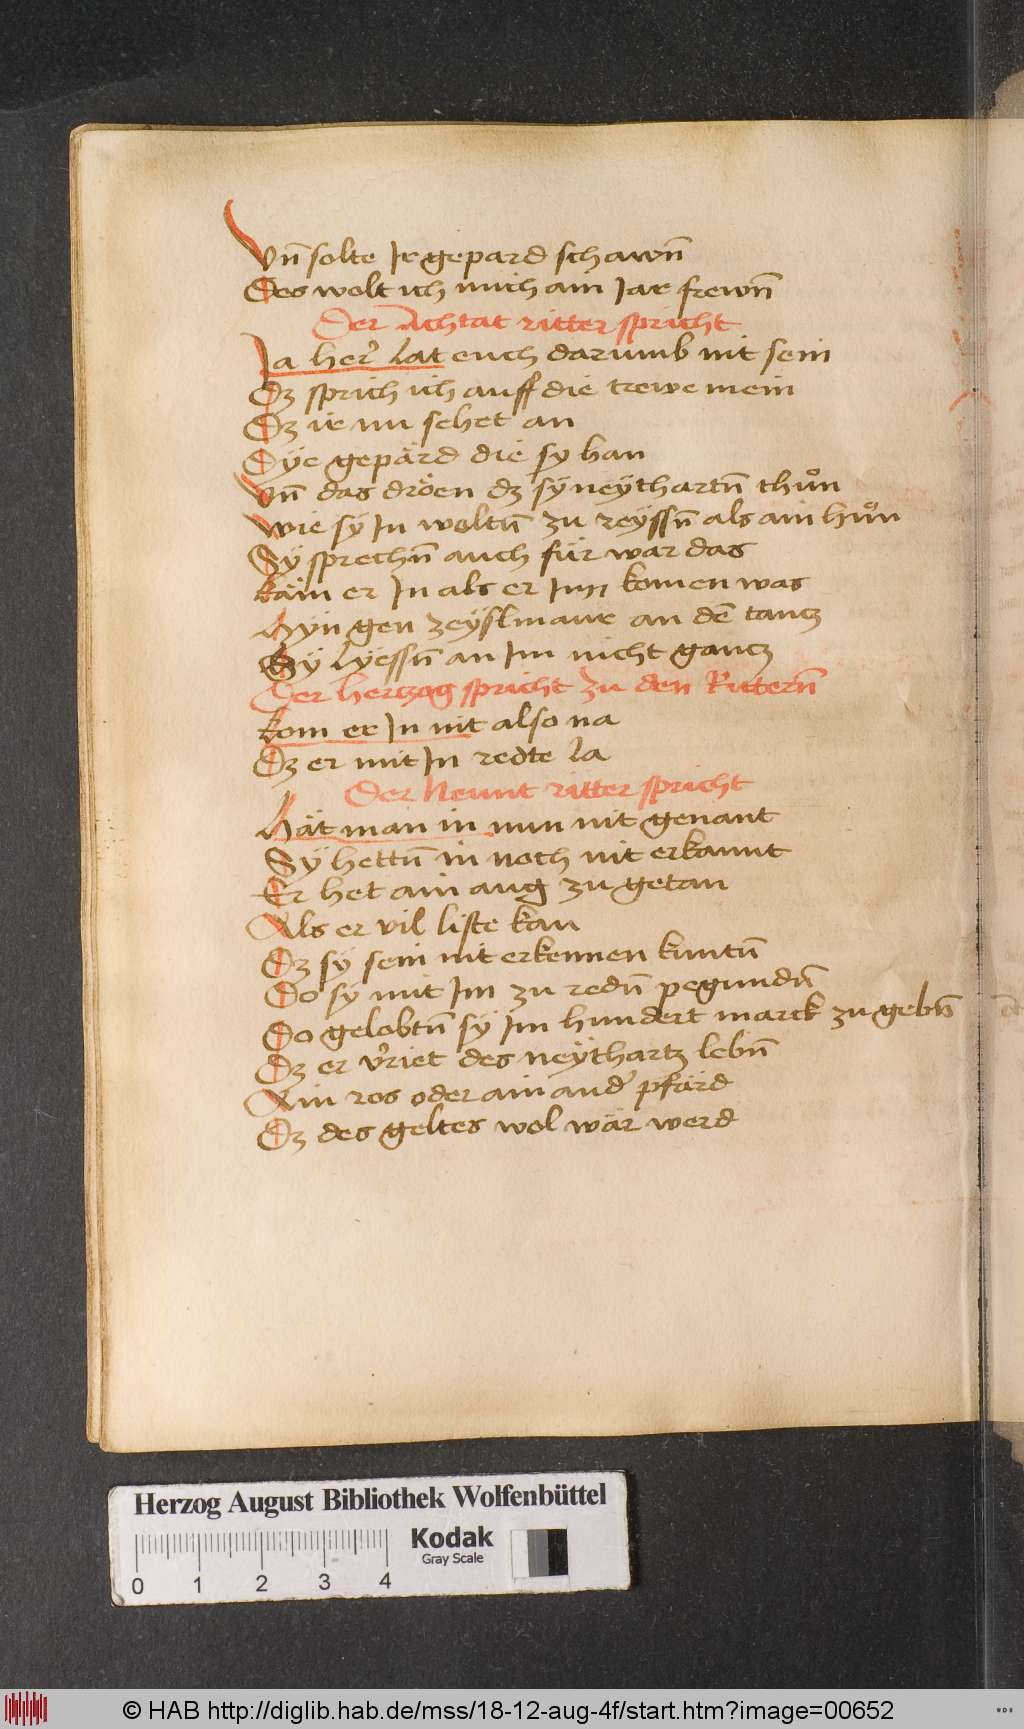 Vn̄ solte Ir gepard schawn̄
Des wolt ich mich ain Jar frewn̄
Der Achtat ritter spricht
Ja her̄ lat euch darumb nit sein
Dz sprich ich auff die trewe mein
Dz ir nu sehet an
Dÿe gepärd die sy han
Vn̄ das dröen dz sÿ neÿthartn̄ thůn
wie sÿ In woltn̄ zu reÿssn̄ als ain hůn
Sÿ sprechn̄ auch für war das
käm er In als er Inn komen was
Hyn gen zeÿslmaur an dē tantz
Sÿ lÿessn̄ an Im nicht gantz
Der hertzog spricht zu den Rittern̄
kom er In nit also na
Dz er mit In redte la
Der Neunt ritter spricht
Hät man in nun nit genant
Sÿ hettn̄ in noch nit erkannt
Er het ain aug zu getan
Als er vil liste kan
Dz sÿ sein nit erkennen kuntn̄
Do sÿ mit Im zu redn̄ pegundn̄
Do gelobtn̄ sÿ Im hundert marck zu gebn̄
Dz er v̓riet des neÿthartz lebn̄
Ain ros oder ain and̓ pfärd
Dz des geltes wol wär werd
Herzog August Bibliothek Wolfenbüttel
Kodak
Gray Scale
0 1 2 3 4
© HAB http://diglib.hab.de/mss/18-12-aug-4f/start.htm?image=00652